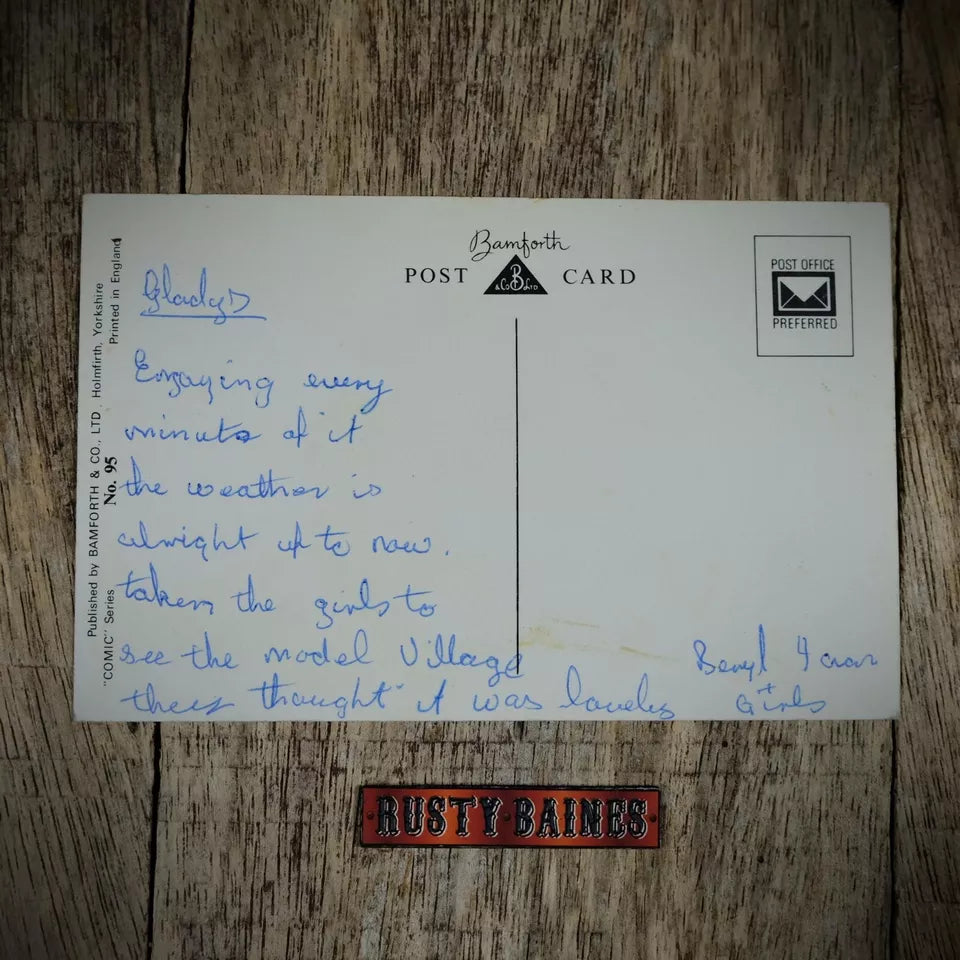 Bamforth
POST CARD
&Co B LTD
POST OFFICE
PREFERRED
Published by BAMFORTH & CO., LTD, Holmfirth, Yorkshire
Printed in England
"COMIC" Series No. 95
Gladys
Enjoying every
minute of it
the weather is
alright up to now.
taken the girls to
see the model Village
they thought it was lovely
Beryl
+
Girls
RUSTY·BAINES